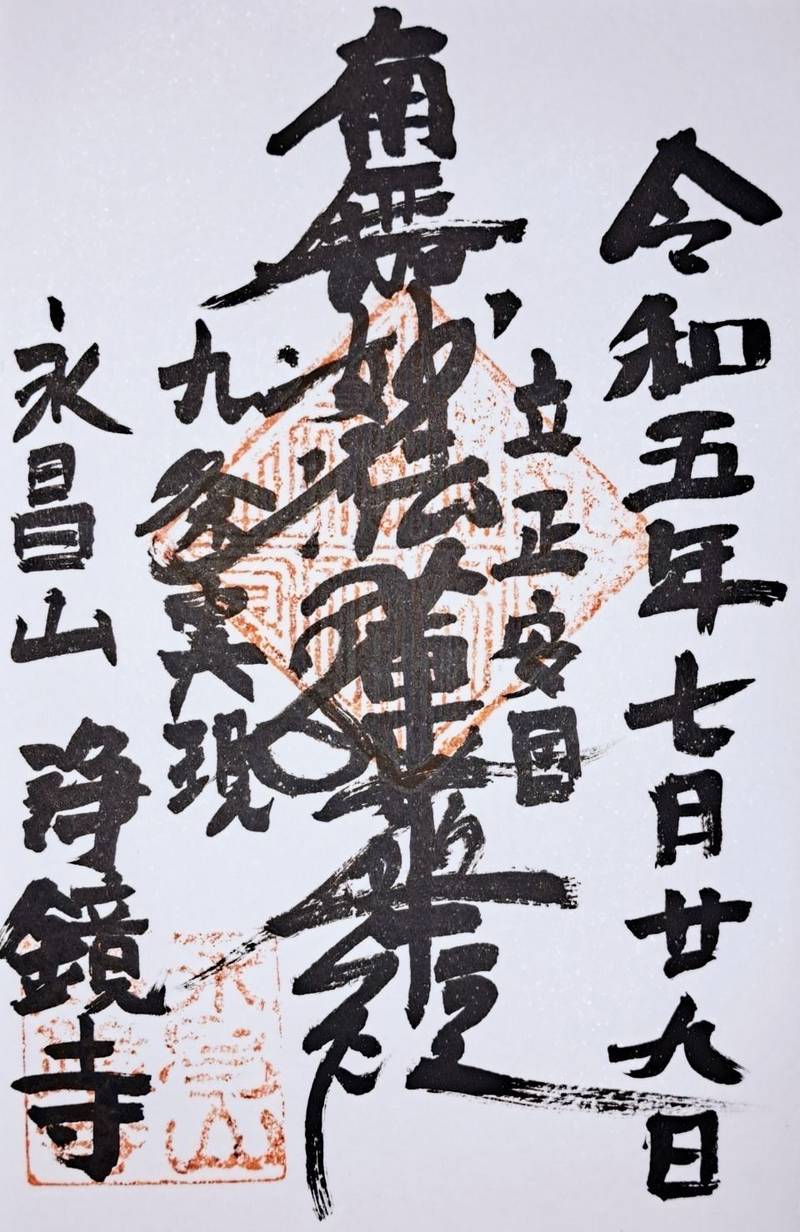 令和五年七月廿九日
立正安国
南無妙法蓮華経
九条実現
永昌山 浄鏡寺